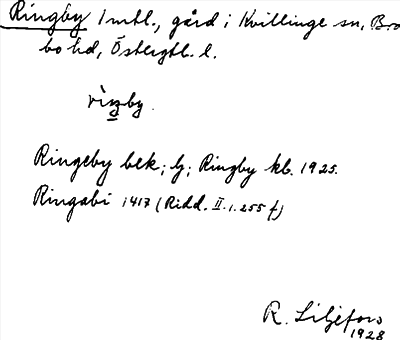 Ringby 1 mtl., gård i Kvillinge sn, Bro
bo hd, Östergtl. l.
rìŋby.
Ringeby bek; Ringby kb. 1925.
Ringabi 1417 (Ridd. II.1.255 f)
R. Liljefors
1928